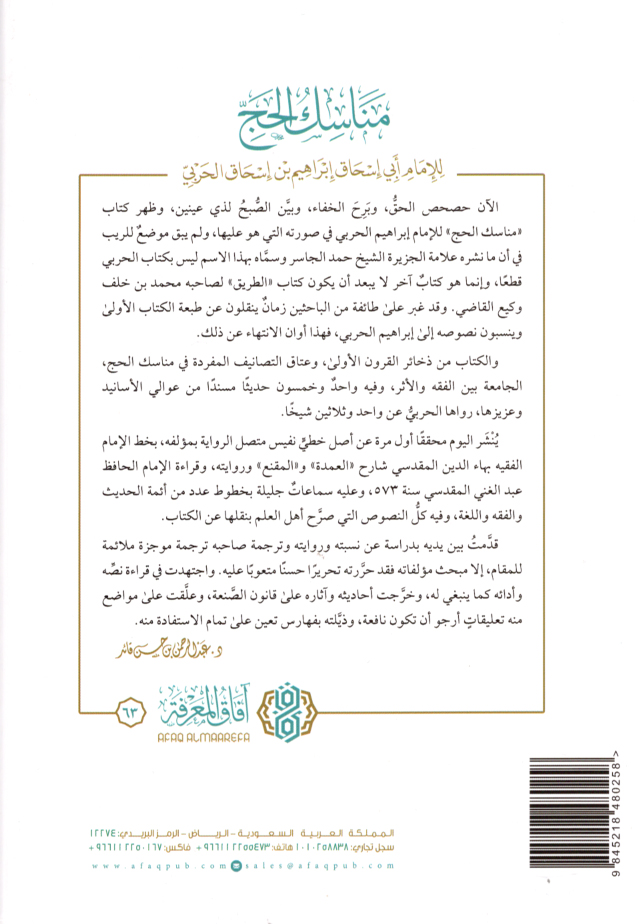 مَنَاسِكُ الحَجِّ
لِلإِمَامِ أَبِي إِسْحَاق إِبْرَاهِيم بن إِسْحَاق الحَرْبِيّ
الآن حصحص الحقُّ، وبَرِحَ الخفاء، وبيَّن الصُّبحُ لذي عينين، وظهر كتاب
«مناسك الحج» للإمام إبراهيم الحربي في صورته التي هو عليها، ولم يبق موضعٌ للريب
في أن ما نشره علامة الجزيرة الشيخ حمد الجاسر وسمَّاه بهذا الاسم ليس بكتاب الحربي
قطعًا، وإنما هو كتابٌ آخر لا يبعد أن يكون كتاب «الطريق» لصاحبه محمد بن خلف
وكيع القاضي. وقد غبر علىٰ طائفة من الباحثين زمانٌ ينقلون عن طبعة الكتاب الأولىٰ
وينسبون نصوصه إلىٰ إبراهيم الحربي، فهذا أوان الانتهاء عن ذلك.
والكتاب من ذخائر القرون الأولىٰ، وعتاق التصانيف المفردة في مناسك الحج،
الجامعة بين الفقه والأثر، وفيه واحدٌ وخمسون حديثًا مسندًا من عوالي الأسانيد
وعزيزها، رواها الحربيُّ عن واحد وثلاثين شيخًا.
يُنْشَر اليوم محققًا أول مرة عن أصل خطيٍّ نفيس متصل الرواية بمؤلفه، بخط الإمام
الفقيه بهاء الدين المقدسي شارح «العمدة» و«المقنع» وروايته، وقراءة الإمام الحافظ
عبد الغني المقدسي سنة ٥٧٣، وعليه سماعاتٌ جليلة بخطوط عدد من أئمة الحديث
والفقه واللغة، وفيه كلُّ النصوص التي صرَّح أهل العلم بنقلها عن الكتاب.
قدَّمتُ بين يديه بدراسة عن نسبته وروايته وترجمة صاحبه ترجمة موجزة ملائمة
للمقام، إلا مبحث مؤلفاته فقد حرَّرته تحريرًا حسنًا متعوبًا عليه. واجتهدت في قراءة نصِّه
وأدائه كما ينبغي له، وخرَّجت أحاديثه وآثاره علىٰ قانون الصَّنعة، وعلَّقت علىٰ مواضع
منه تعليقاتٍ أرجو أن تكون نافعة، وذيَّلته بفهارس تعين علىٰ تمام الاستفادة منه.
د. عبد الرحمن بن حسن قائد
آفاق المعرفة
AFAQ ALMAAREFA
٦٣
المملكة العربية السعودية - الرياض - الرمز البريدي: ١٢٢٧٤
سجل تجاري: ١٠١٠٢٥٨٨٣٨ هاتف: ٩٦٦١١٢٢٥٥٤٧٣+ فاكس: ٩٦٦١١٢٢٥٠١٦٧+
www.afaqpub.com sales@afaqpub.com
9 845218 480258 >